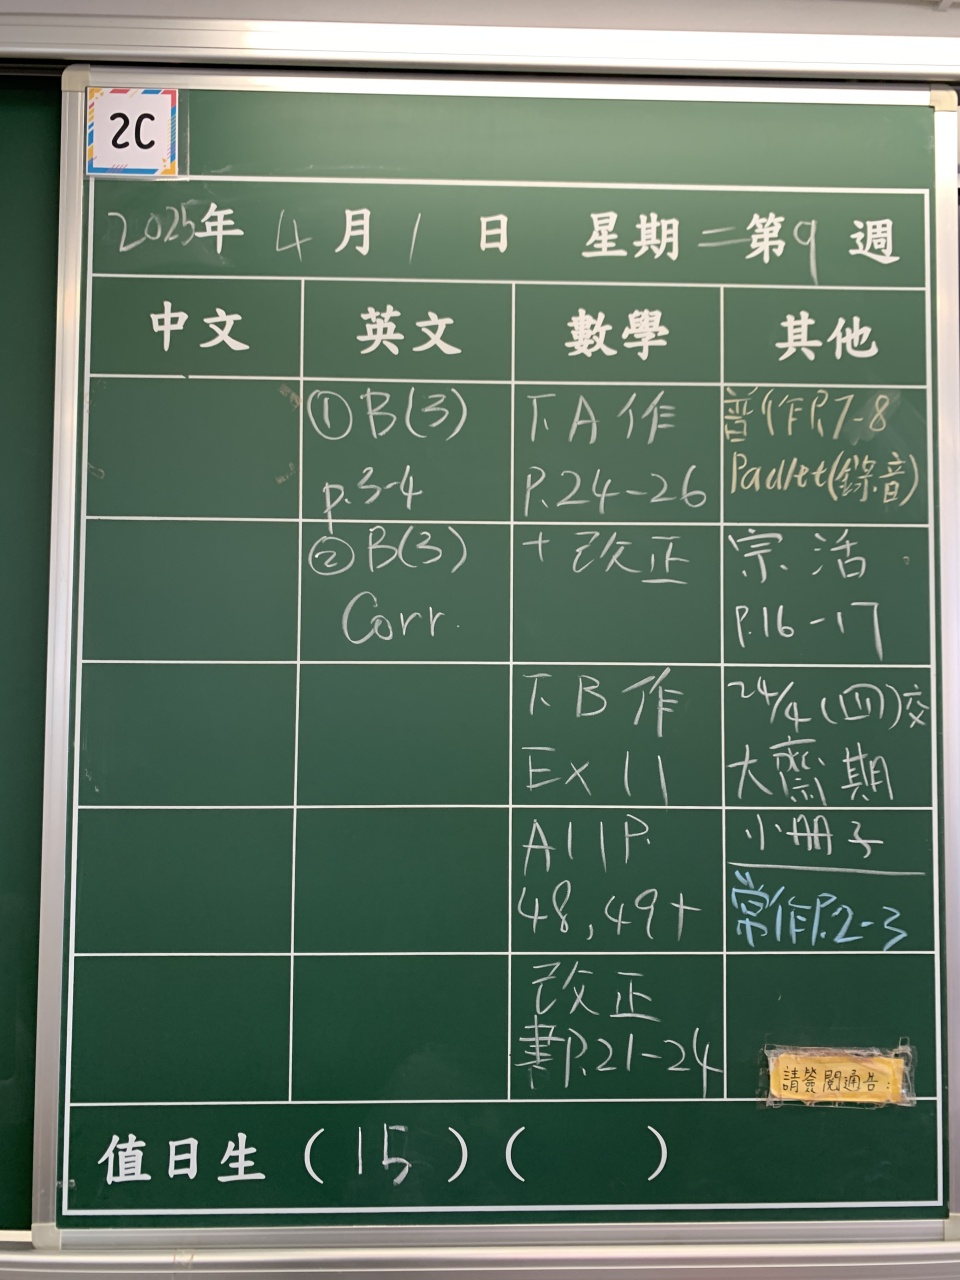 2C
2025年 4月1日 星期二第9週
中文 英文 數學 其他
①B(3)
p.3-4
②B(3)
Corr.
下A作
P.24-26
+改正
下B作
Ex 11
A11P.
48,49+
改正
書P.21-24
普作P.7-8
Padlet(錄音)
宗活
P.16-17
24/4(四)交
大齋期
小冊子
常作P.2-3
請簽閱通告:
值日生(15)( )